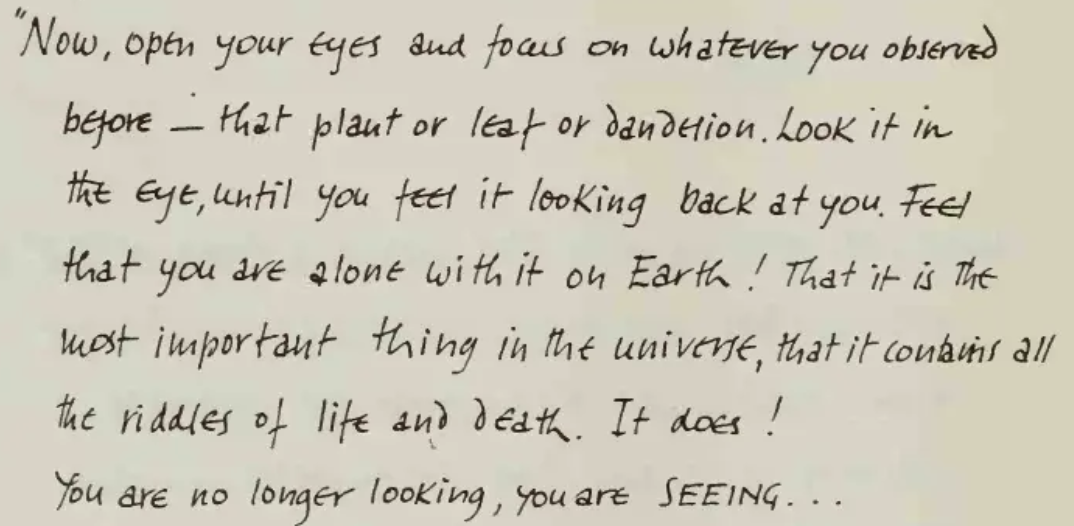 "Now, open your eyes and focus on whatever you observed
before — that plant or leaf or dandelion. Look it in
the eye, until you feel it looking back at you. Feel
that you are alone with it on Earth! That it is the
most important thing in the universe, that it contains all
the riddles of life and death. It does!
You are no longer looking, you are SEEING...